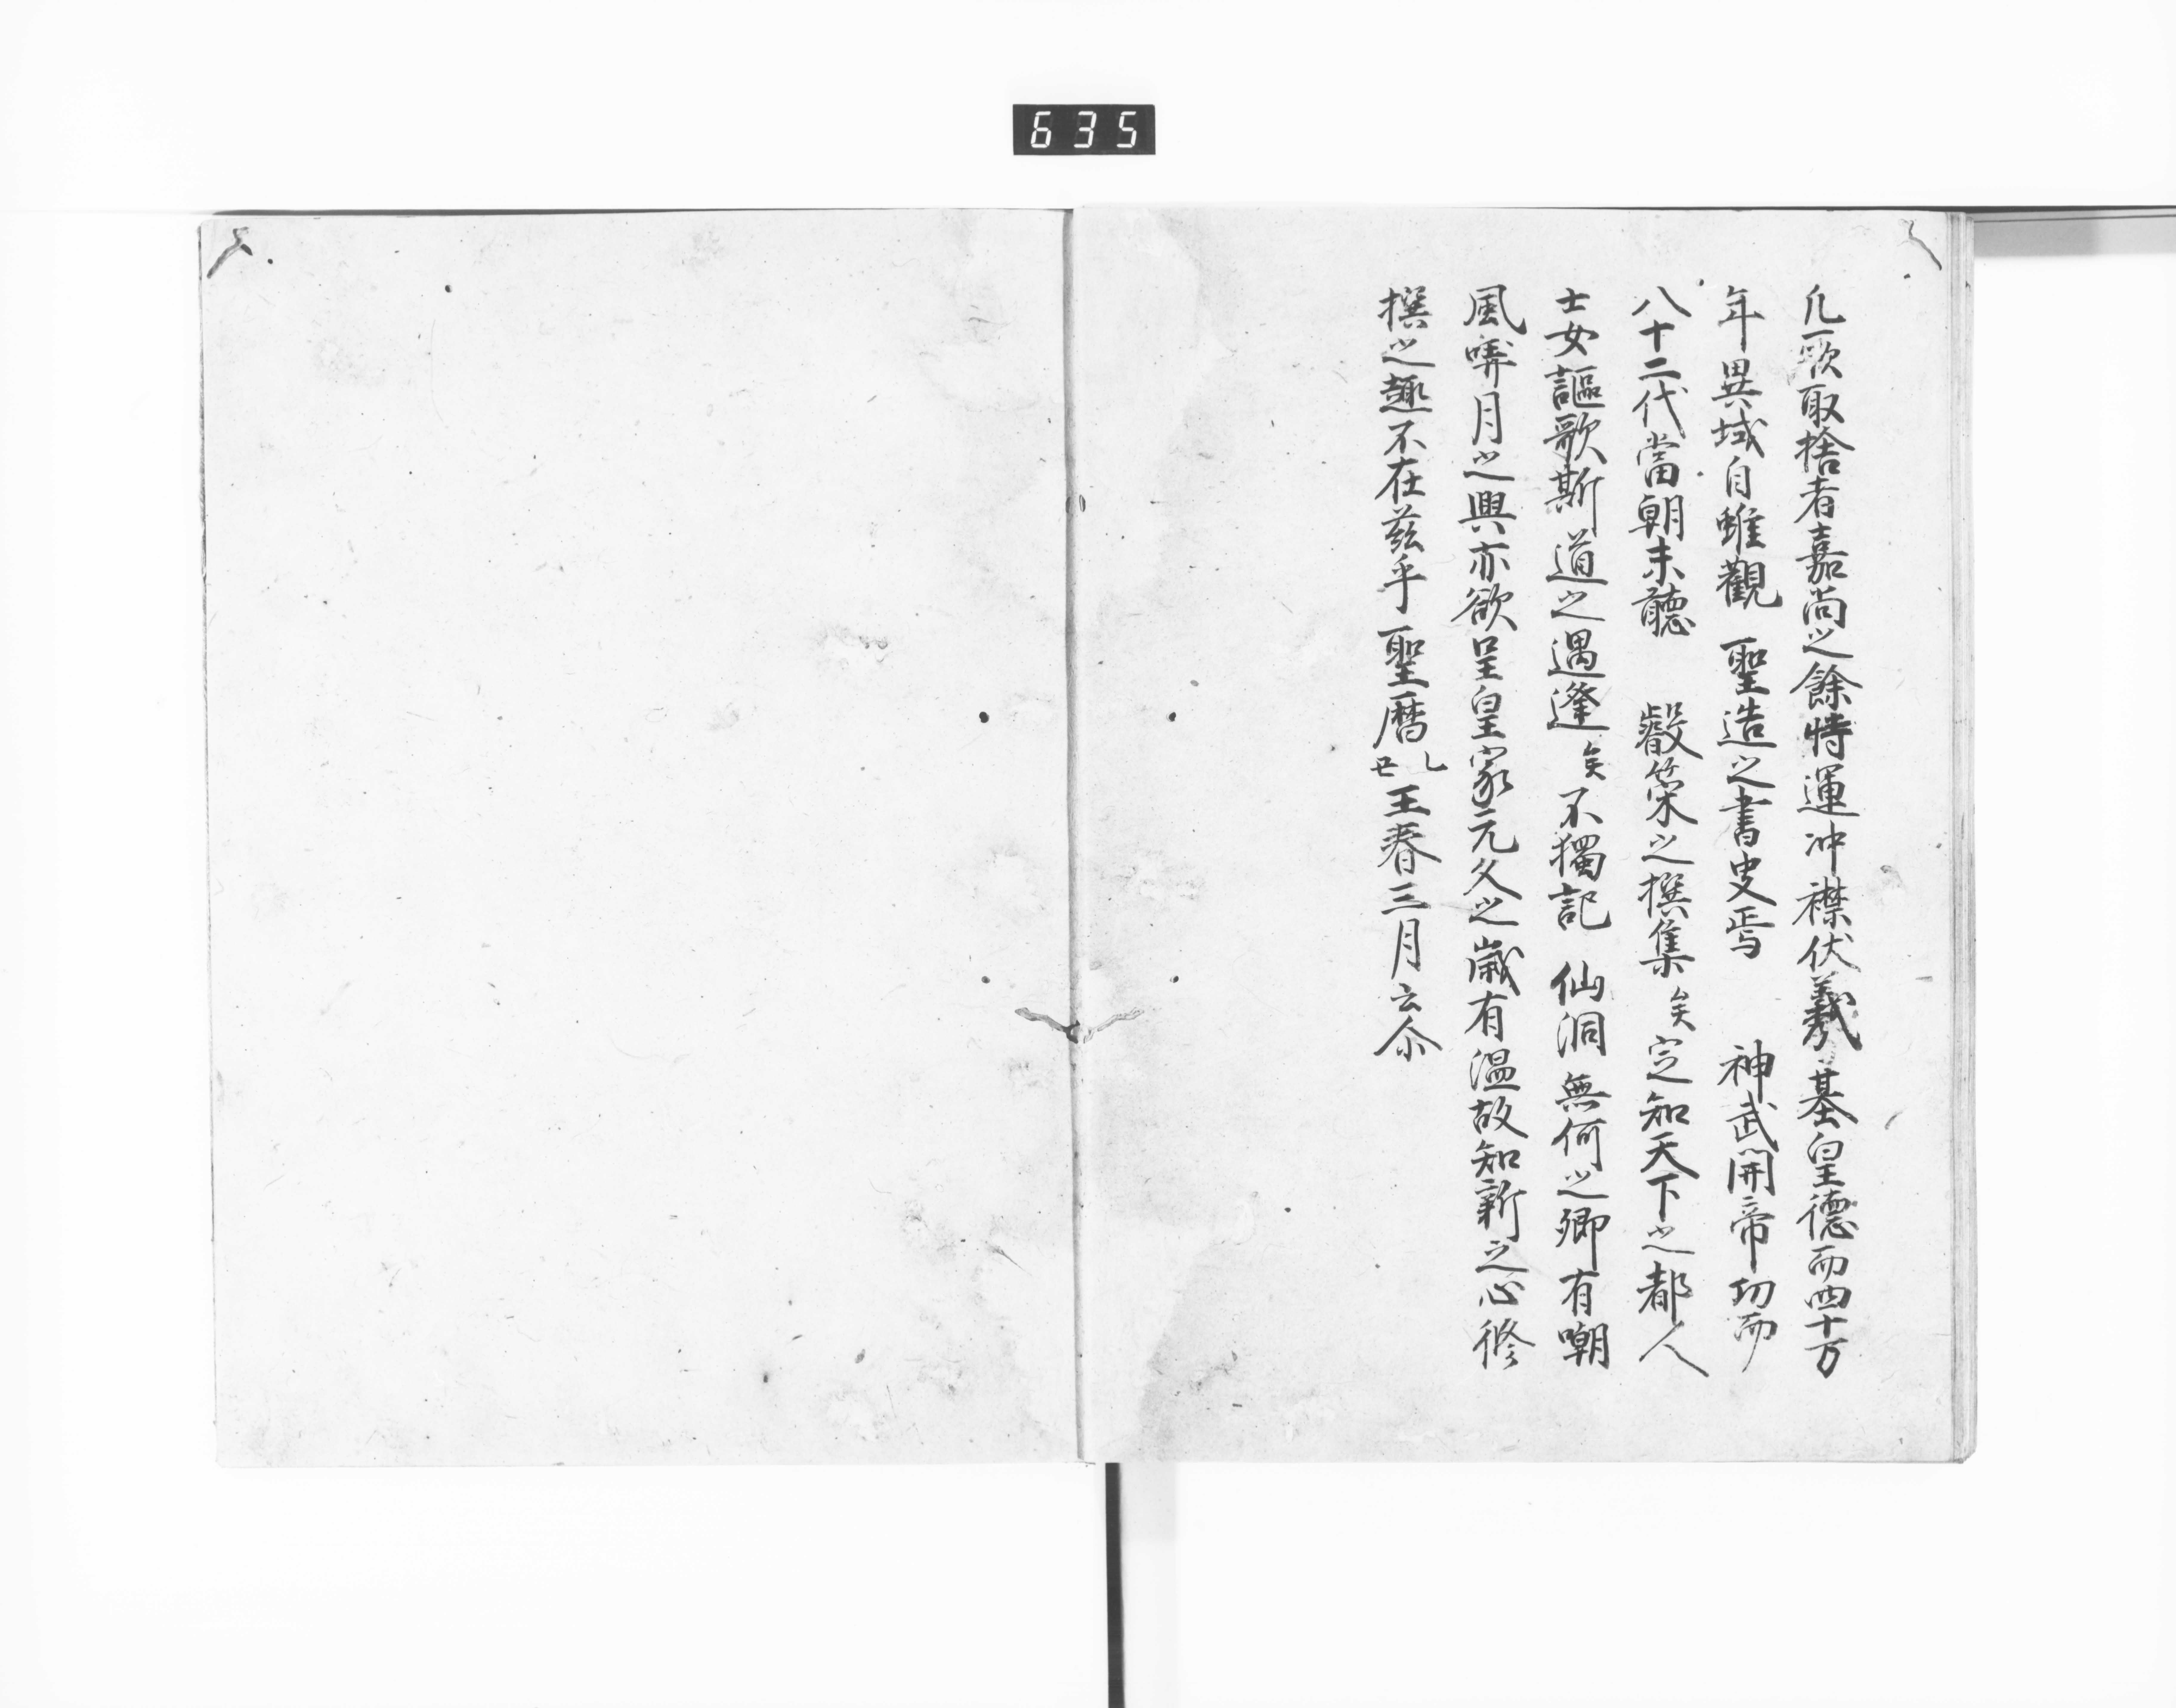 635
凡厥取捨者嘉尚之餘特運冲襟伏羲基皇德而四十万
年異域自雖觀 聖造之書史焉 神武開帝功而
八十二代當朝未聽 叡策之撰集矣定知天下之都人
士女謳歌斯道之遇逢矣不獨記 仙洞無何之郷有嘲
風哢月之興亦欲呈皇家元久之歳有温故知新之心修
撰之趣不在兹乎 聖暦乙丑王春三月云尒